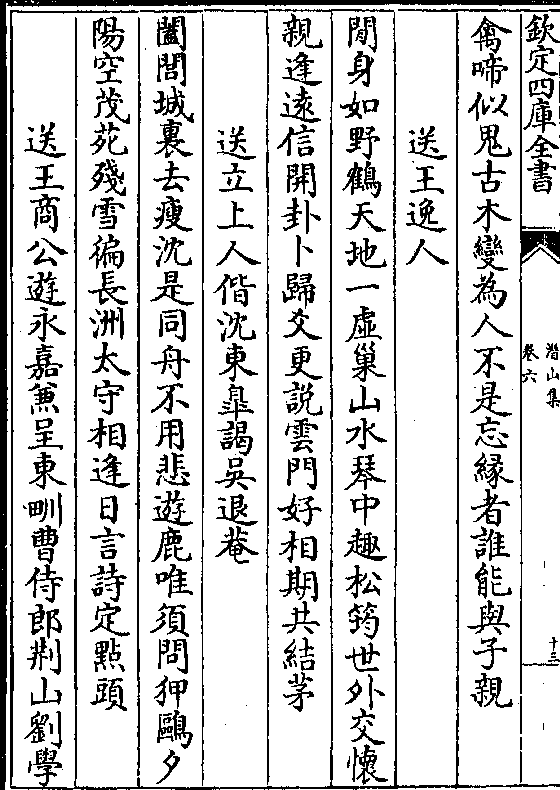 欽定四庫全書
潛山集
卷六
十三
禽啼似鬼古木變為人不是忘緣者誰能與子親
送王逸人
閒身如野鶴天地一虛巢山水琴中趣松筠世外交懷
親逢逺信開卦卜歸爻更說雲門好相期共結茅
送立上人偕沈東臯謁吳退菴
闔閭城裏去瘦沈是同舟不用悲遊鹿唯須問狎鷗夕
陽空茂苑殘雪徧長洲太守相逢日言詩定點頭
送王商公遊永嘉兼呈東甽曹侍郎荆山劉學